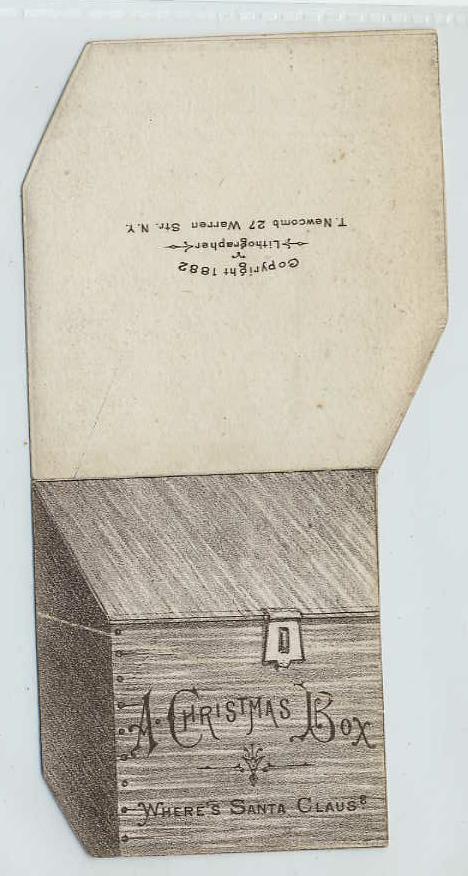 T. Newcomb 27 Warren Str. N.Y.
Lithographer
Copyright 1882
A Christmas Box
Where's Santa Claus?